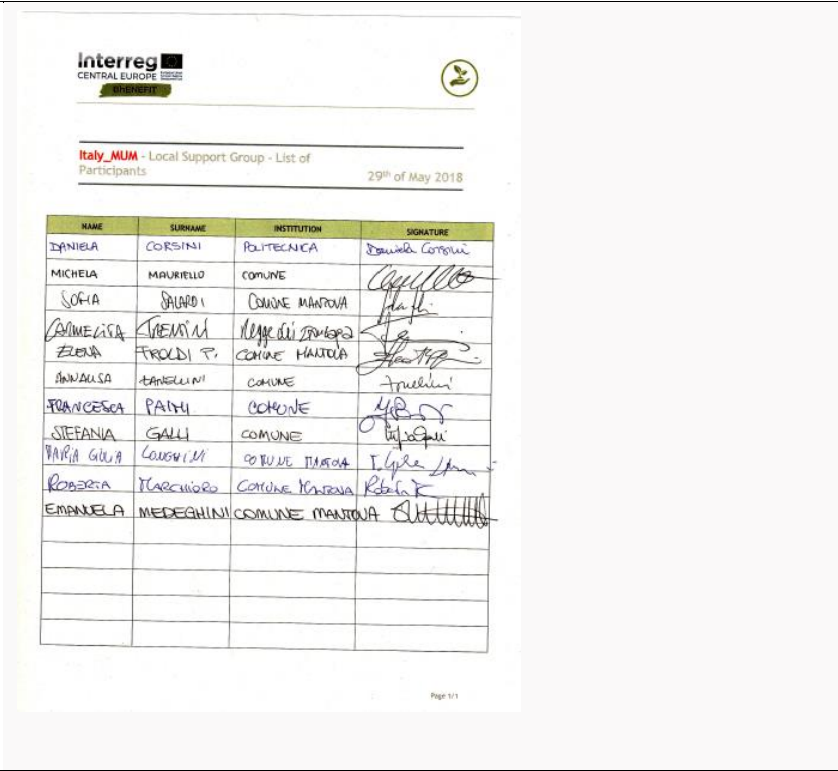 Interreg
CENTRAL EUROPE
BhENEFIT
Italy_MUM - Local Support Group - List of
Participants
29th of May 2018
NAME SURNAME INSTITUTION SIGNATURE
DANIELA CORSINI POLITECNICA Daniela Corsini
MICHELA MAURIELLO COMUNE
SOFIA SALARDI COMUNE MANTOVA
CARMELITA TRENTINI
ELENA FROLDI P. COMUNE MANTOVA
ANNALISA COMUNE
FRANCESCA COMUNE
STEFANIA GALLI COMUNE
MARIA GIULIA LONGHINI COMUNE MANTOVA
ROBERTA MARCHIORO COMUNE MANTOVA Roberta
EMANUELA MEDEGHINI COMUNE MANTOVA
Page 1/1